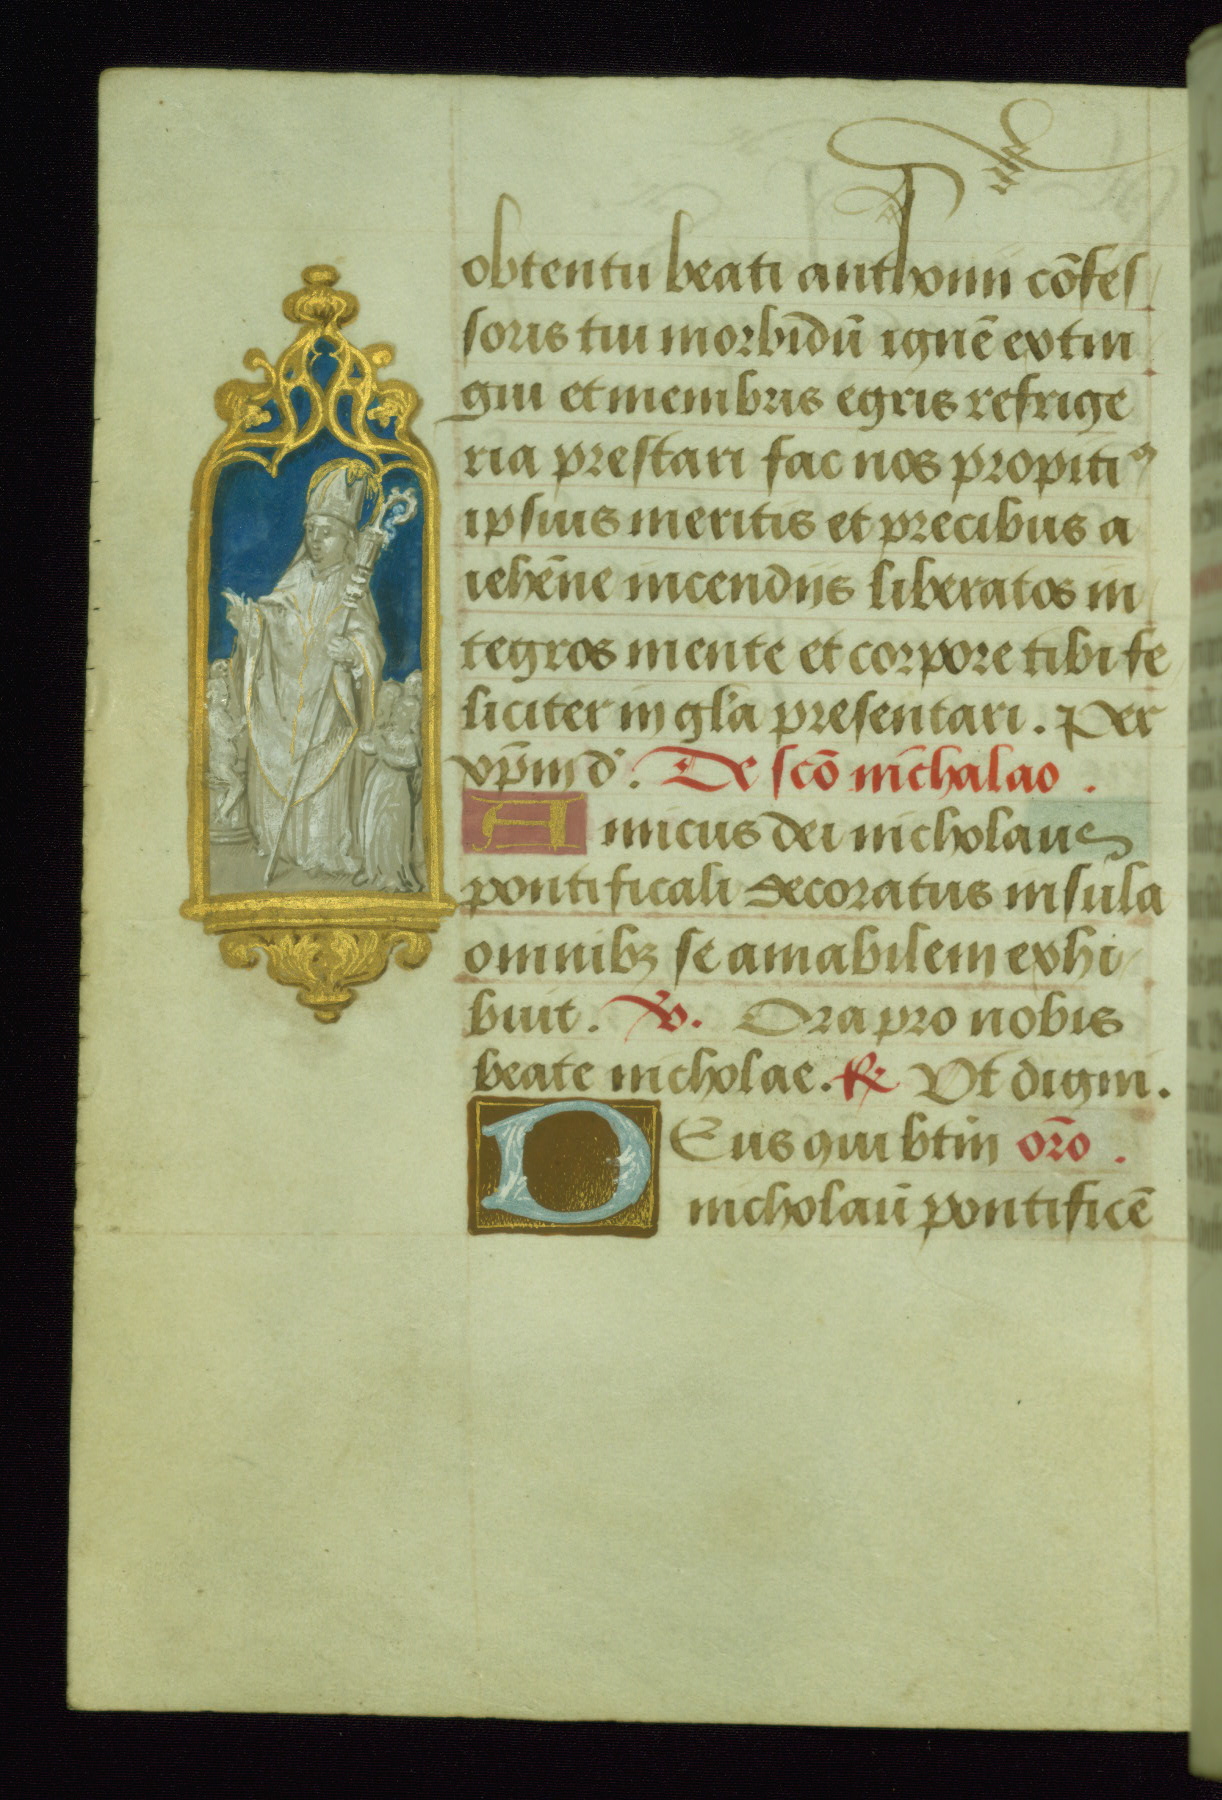 obtentu beati anthonii cōfes
soris tui morbidū ignē extin
gui et membris egris refrige
ria prestari fac nos propitiꝰ
ipsius meritis et precibus a
iehēne incendiis liberatos in
tegros mente et corpore tibi fe
liciter in gl'a presentari. Per
xp̄m d'. De scō nicholao.
Amicus dei nicholaus
pontificali decoratus insula
omnibꝫ se amabilem exhi
buit. ℣. Ora pro nobis
beate nicholae. ℟ Ut digni.
Deus qui btm orō.
nicholaū pontificē